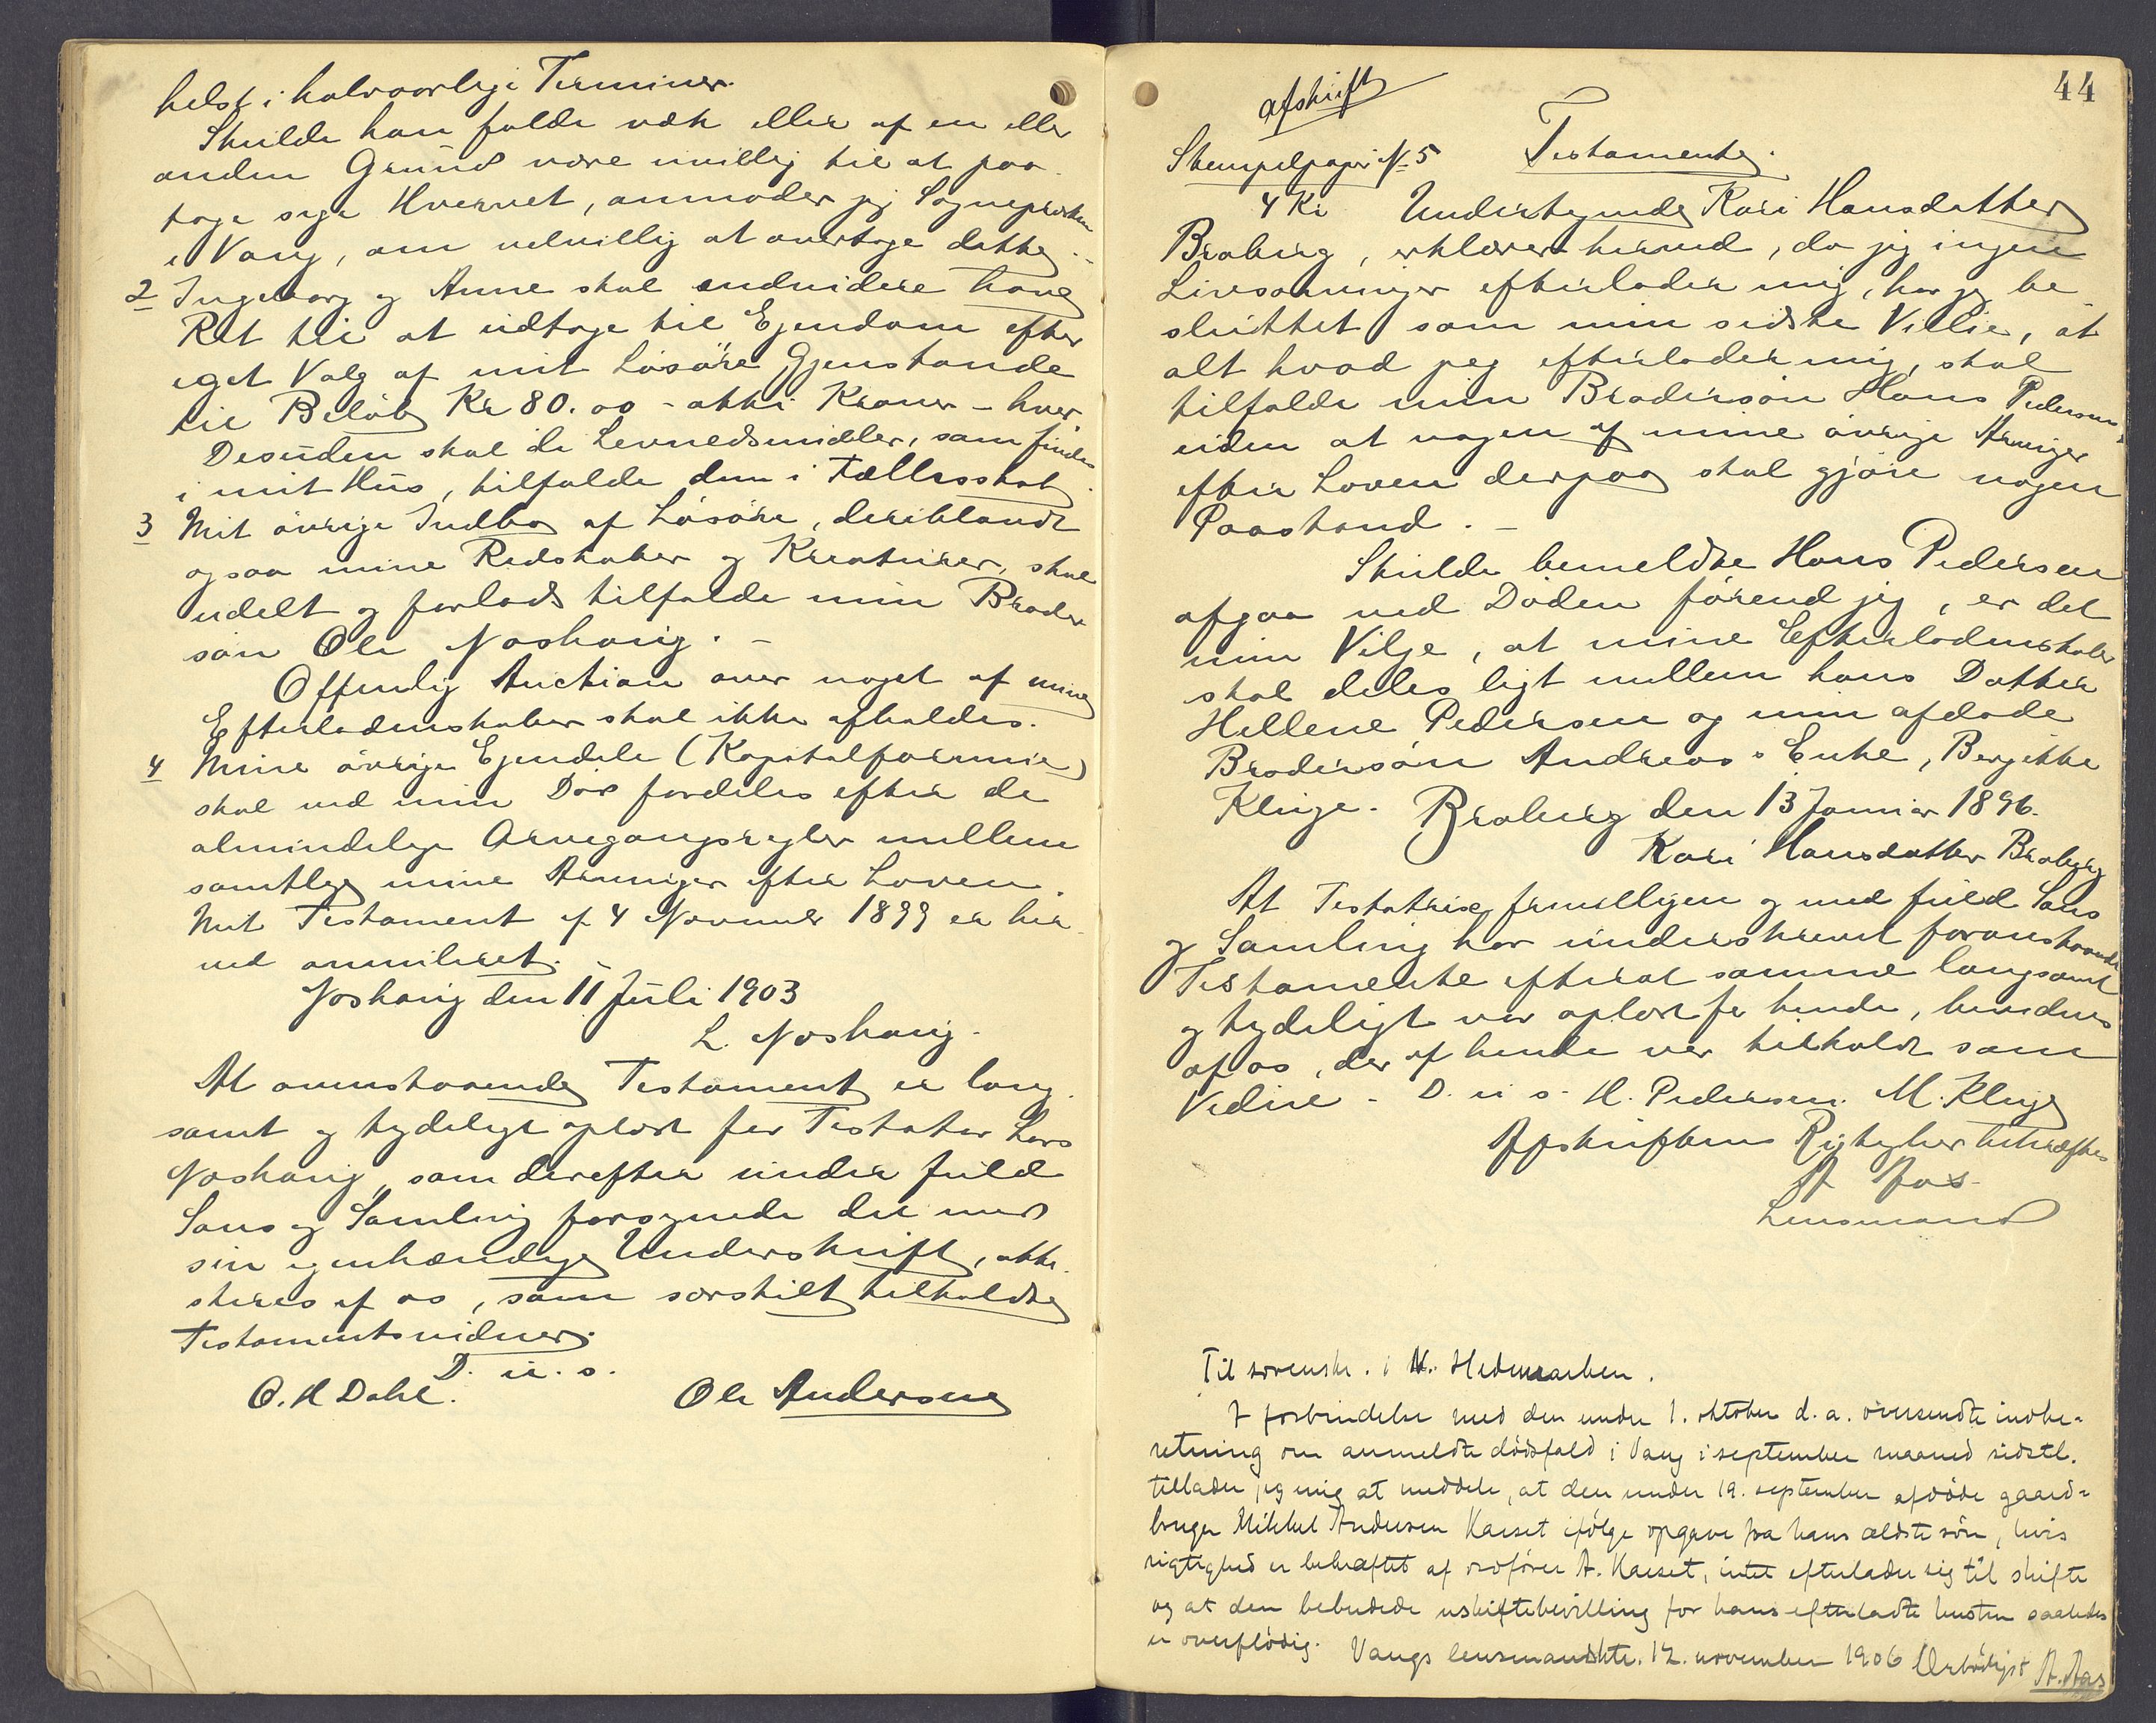 helst i halvaarlige Terminer.
Skulde han falde væk eller af en eller
anden Grund være uvillig til at paa-
tage sig Hvervet, anmoder jeg Sognepresten
i Vang, om velvillig at overtage dette.
2 Ingeborg og Anne skal endvidere have
Ret til at udtage til Ejendom efter
eget Valg af mit Løsøre Gjenstande
til Beløb Kr 80.00 - otti Kroner - hver
Desuden skal de Levnedsmidler, som findes
i mit Hus, tilfalde dem i Fællesskab.
3 Mit øvrige Indbo af Løsøre, deriblandt
ogsaa mine Redskaber og Kreaturer, skal
udelt og forlods tilfalde min Broder
søn Ole Noskarig. -
Offentlig Auction over noget af mine
Efterladenskaber skal ikke afholdes.
4 Mine øvrige Ejendele (Kapitalformue)
skal ved min Død fordeles efter de
almindelige Arvegangsregler mellem
samtlige mine Arvinger efter Loven.
Mit Testament af 4 November 1899 er her
ved annuleret. -
Noskarig den 11 Juli 1903
L. Noskarig.
At ovenstaaende Testament er lang
samt og tydeligt oplæst for Testator Lars
Noskarig, som derefter under fuld
Sans og Samling forsynede det med
sin egenhændige Underskrift, atte-
steres af os, som særskilt tilkaldte
Testamentsvidner.
D. u. s.
O. H Dahl. Ole Andersen
44
Afskrift
Stempelpapir N 5 Testamente.
4 Kr Undertegnede Kari Hansdatter
Broberg, erklærer herved, da jeg ingen
Livsarvinger efterlader mig, har jeg be
sluttet som min sidste Villie, at
alt hvad jeg efterlader mig, skal
tilfalde min Brodersøn Hans Pedersen,
uden at nogen af mine øvrige Arvinger
efter Loven derpaa skal gjøre nogen
Paastand. -
Skulde bemeldte Hans Pedersen
afgaa ved Døden førend jeg, er det
min Vilje, at mine Efterladenskaber
skal deles ligt mellem hans Datter
Hellene Pedersen og min afdøde
Brodersøn Andreas's Enke, Bergitte
Kluge. Broberg den 13 Januar 1896.
Kari Hansdatter Broberg
At Testatrix frivilligen og med fuld Sans
og Samling har underskrevet foranstaaende
Testamente efterat samme langsomt
og tydeligt var oplæst for hende, bevidnes
af os, der af hende var tilkaldt som
Vidne - D. u s. H. Pedersen. M. Kluge
Afskriftens Rigtighed bekræftes
A Aas
Lensmand
Til sorenskr. i N. Hedemarken.
I forbindelse med den under 1. oktober d.a. oversendte indbe-
retning om anmeldte dødsfald i Vang i september maaned sidstl.
tillader jeg mig at meddele, at den under 19. september afdøde gaard-
bruger Mikkel Andersen Karset ifølge opgave fra hans ældste søn, hvis
rigtighed er bekræftet af ordfører A. Karset, intet efterlader sig til skifte
og at den bebudede uskiftebevilling for hans efterladte hustru saaledes
er overflødig. Vangs lensmandsktr. 12. november 1906 Ærbødigst A. Aas